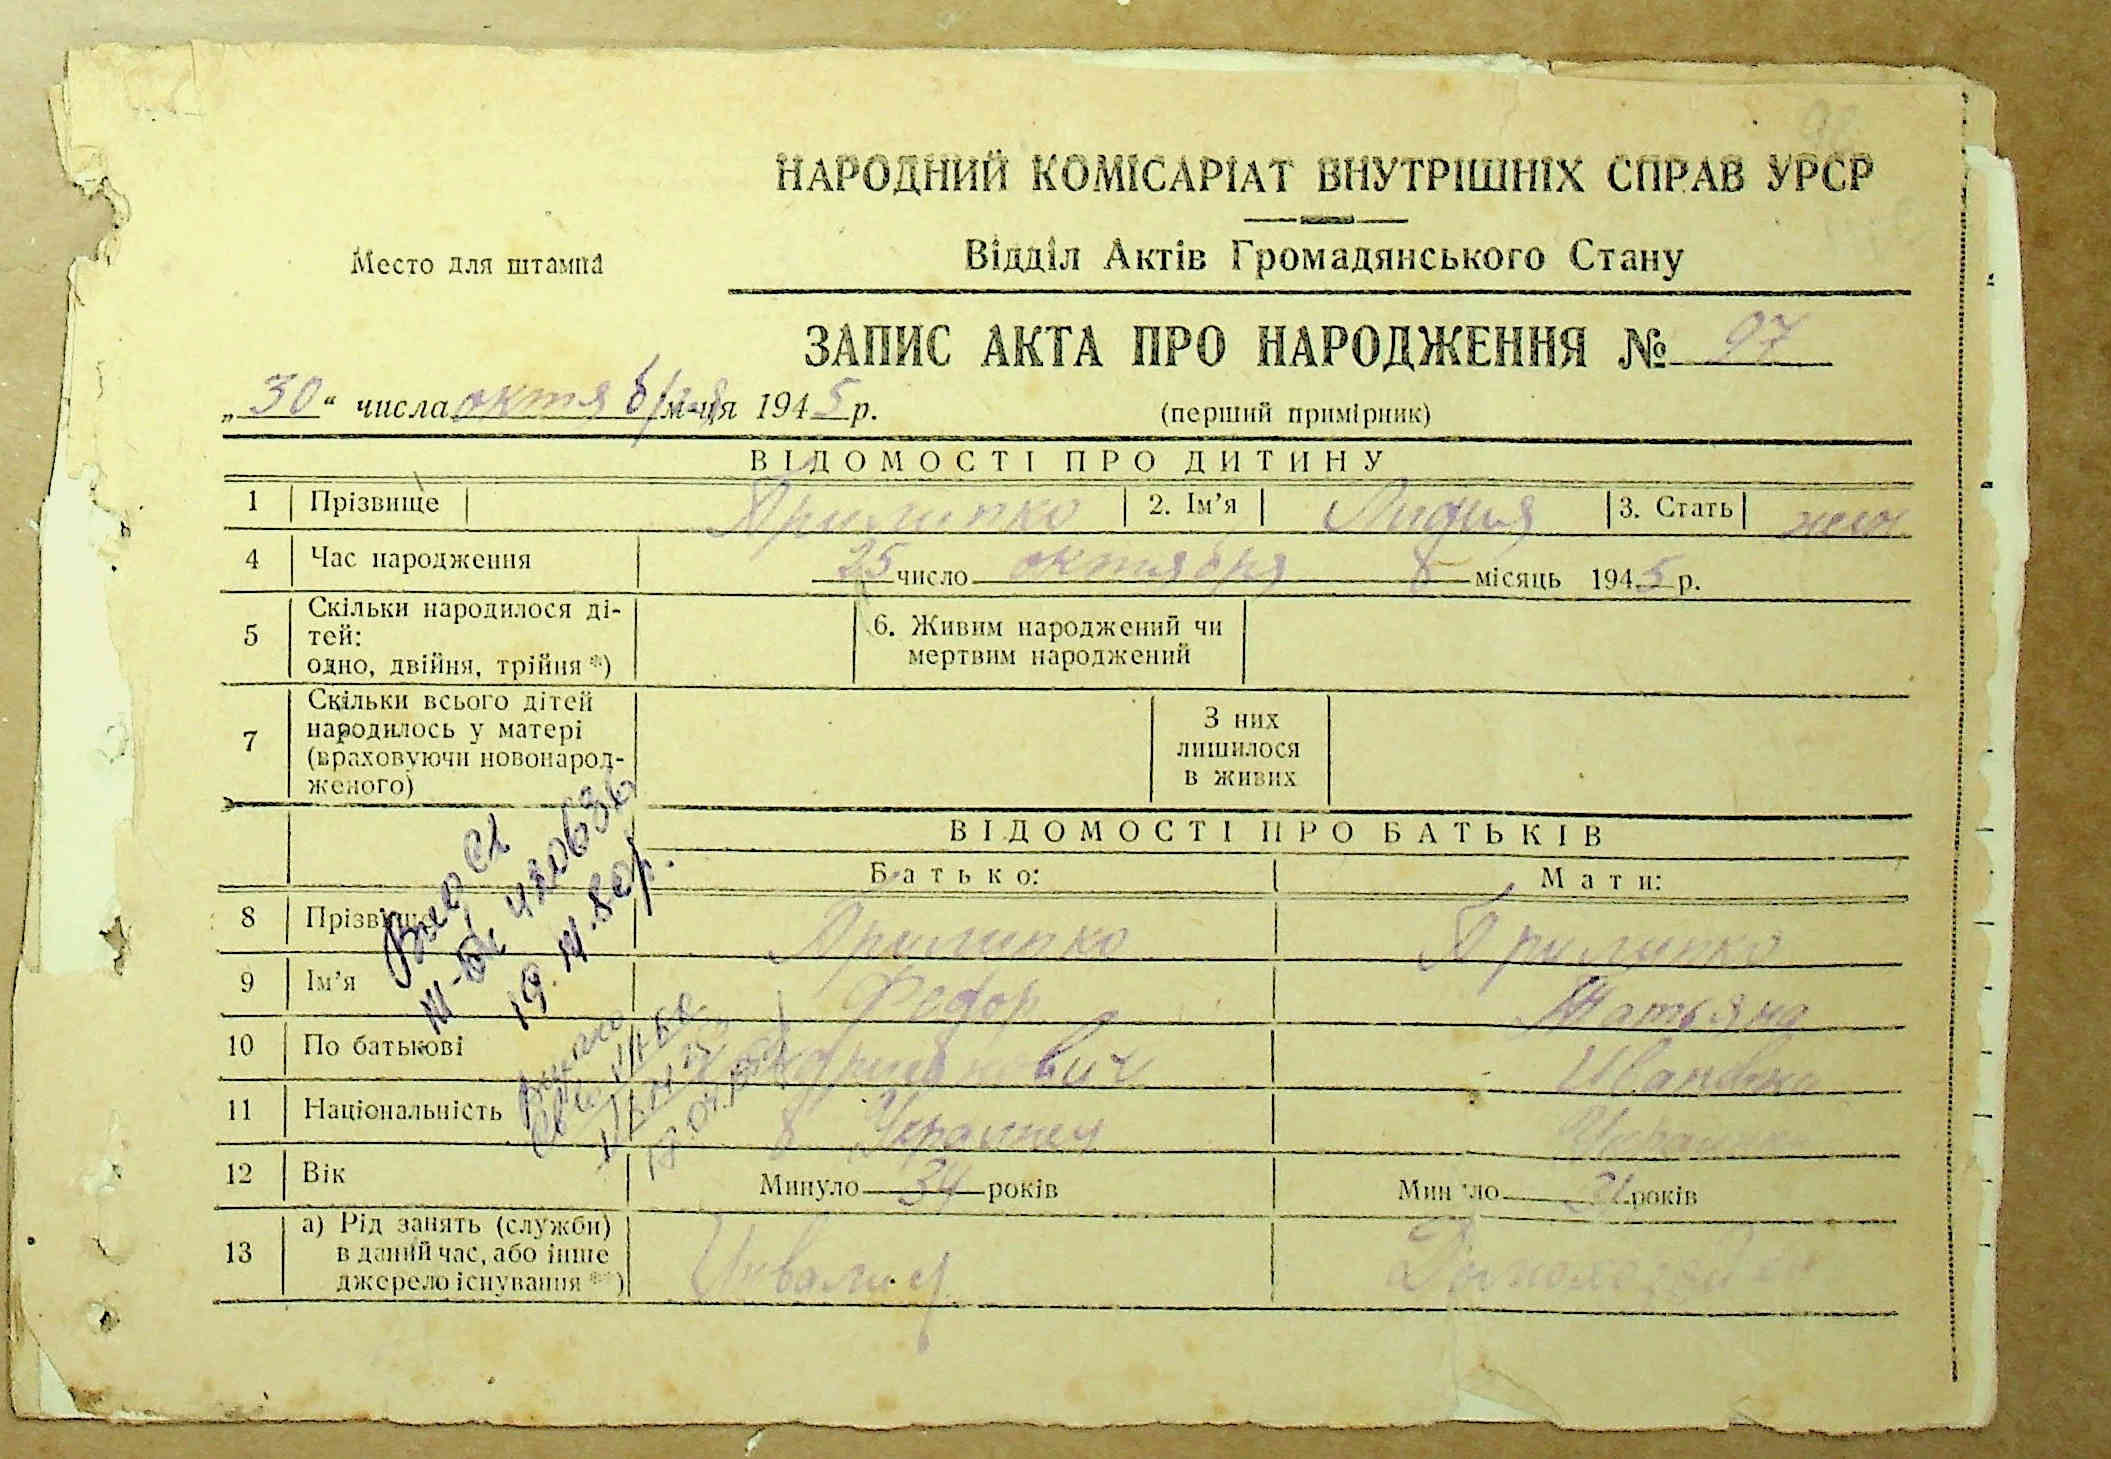 НАРОДНИЙ КОМІСАРІАТ ВНУТРІШНІХ СПРАВ УРСР
Место для штампа
Відділ Актів Громадянського Стану
ЗАПИС АКТА ПРО НАРОДЖЕННЯ № 97
„30“ числа октября м-ця 1945 р.
(перший примірник)
ВІДОМОСТІ ПРО ДИТИНУ
1 Прізвище Прилипко 2. Ім’я Лидия 3. Стать жен
4 Час народження 25 число октября місяць 1945 р.
5 Скільки народилося ді-
тей:
одно, двійня, трійня *)
6. Живим народжений чи
мертвим народжений
7 Скільки всього дітей
народилось у матері
(враховуючи новонарод-
женого)
З них
лишилося
в живих
ВІДОМОСТІ ПРО БАТЬКІВ
Батько: Мати:
8 Прізвище Прилипко Прилипко
9 Ім’я Федор Татьяна
10 По батькові Ивановна
11 Національність Украинец Украинка
12 Вік Минуло 34 років Минуло років
13 а) Рід занять (служби)
в даний час, або інше
джерело існування **)
Инвалид Домохозяйка
19.III.80р.